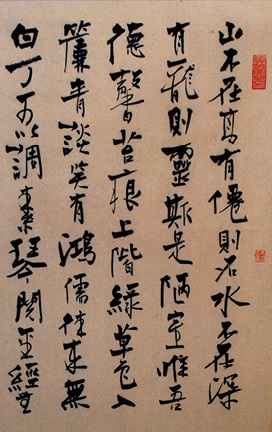 山不在高有僊則名水不在深
有龍則靈斯是陋室惟吾
德馨苔痕上階綠草色入
簾青談笑有鴻儒往來無
白丁可以調素琴閱金經